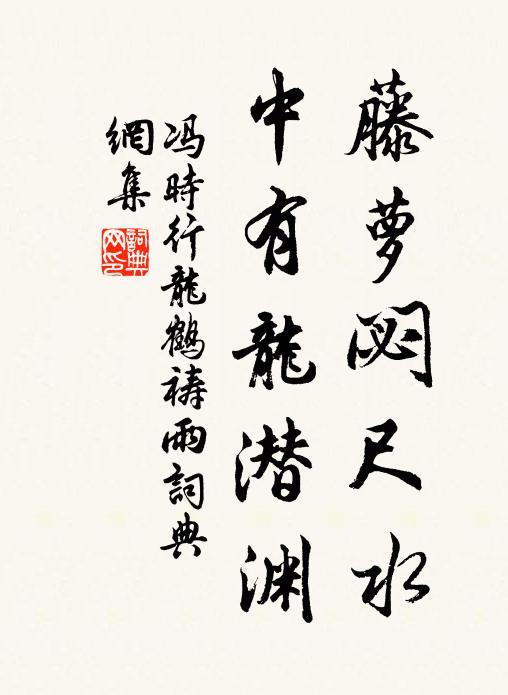 藤萝閟尺水
中有龍潜渊
冯時行龍鶴禱雨詞典
網集
詞典
网印